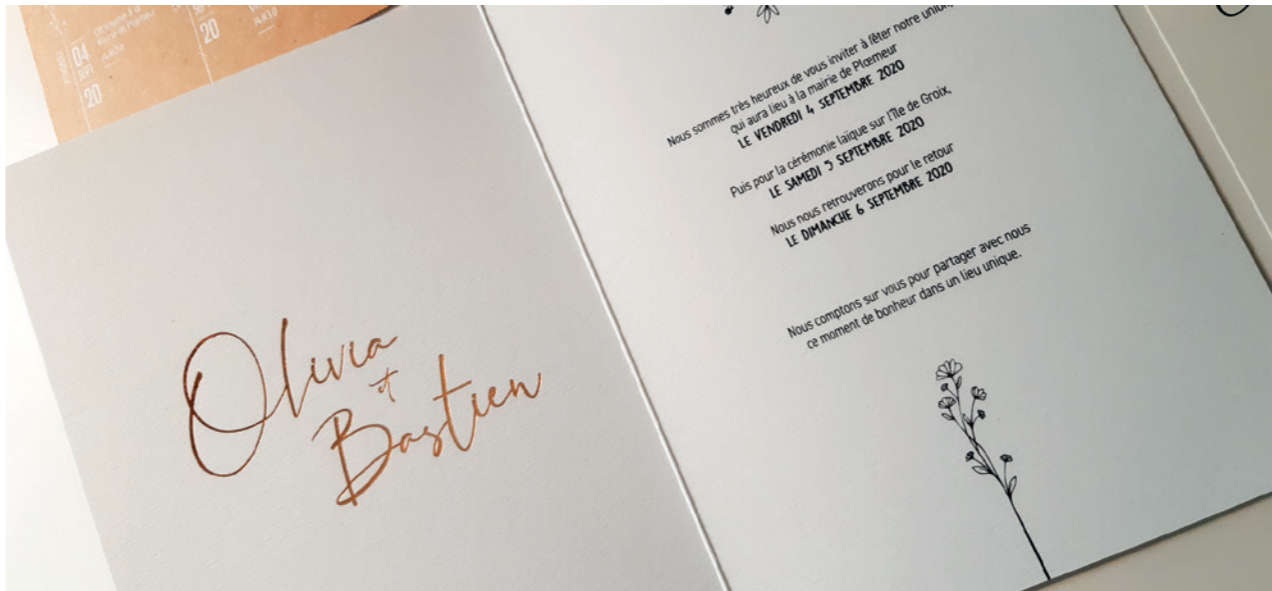 04
SEPT
20
20
14h30
Olivia
et
Bastien
Nous sommes très heureux de vous inviter à fêter notre union,
qui aura lieu à la mairie de Plœmeur
LE VENDREDI 4 SEPTEMBRE 2020
Puis pour la cérémonie laïque sur l'île de Groix,
LE SAMEDI 5 SEPTEMBRE 2020
Nous nous retrouverons pour le retour
LE DIMANCHE 6 SEPTEMBRE 2020
Nous comptons sur vous pour partager avec nous
ce moment de bonheur dans un lieu unique.